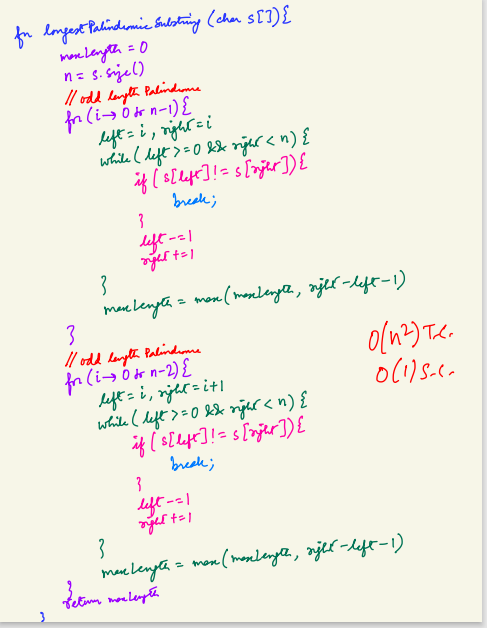 fn longestPalindromicSubstring (char s[]){
maxLength = 0
n = s.size()
// odd length Palindrome
for (i→ 0 to n-1){
left = i, right = i
while (left >= 0 && right < n) {
if (s[left] != s[right]){
break;
}
left -= 1
right += 1
}
maxLength = max(maxLength, right-left-1)
}
// odd length Palindrome
for (i→ 0 to n-2){
left = i, right = i+1
while (left >= 0 && right < n) {
if (s[left] != s[right]){
break;
}
left -= 1
right += 1
}
maxLength = max(maxLength, right-left-1)
}
return maxLength
}
O(n²) T.C.
O(1) S.C.